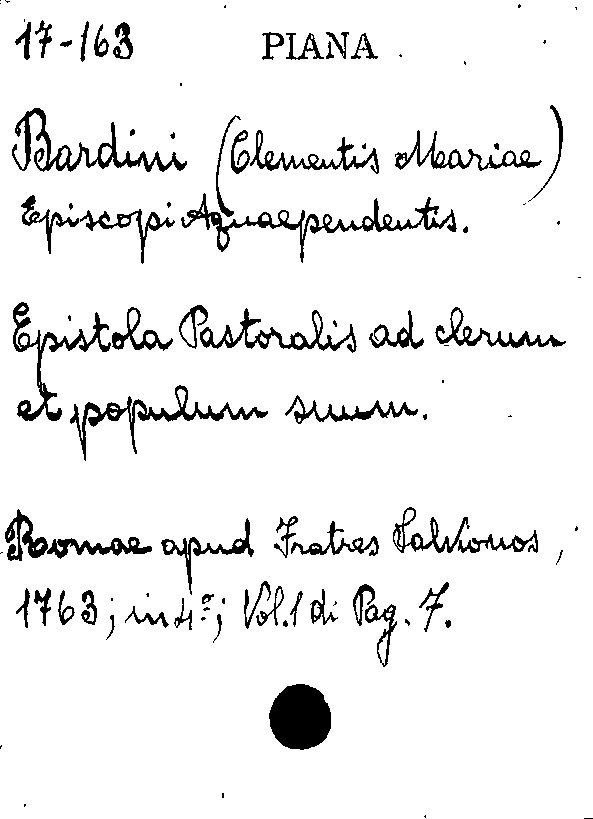 17-163 PIANA
Bardini (Clementis Mariae)
Episcopi Aquaependentis.
Epistola Pastoralis ad clerum
et populum suum.
Romae apud Fratres Salvionos,
1763; in 4º; Vol. 1 di Pag. 7.